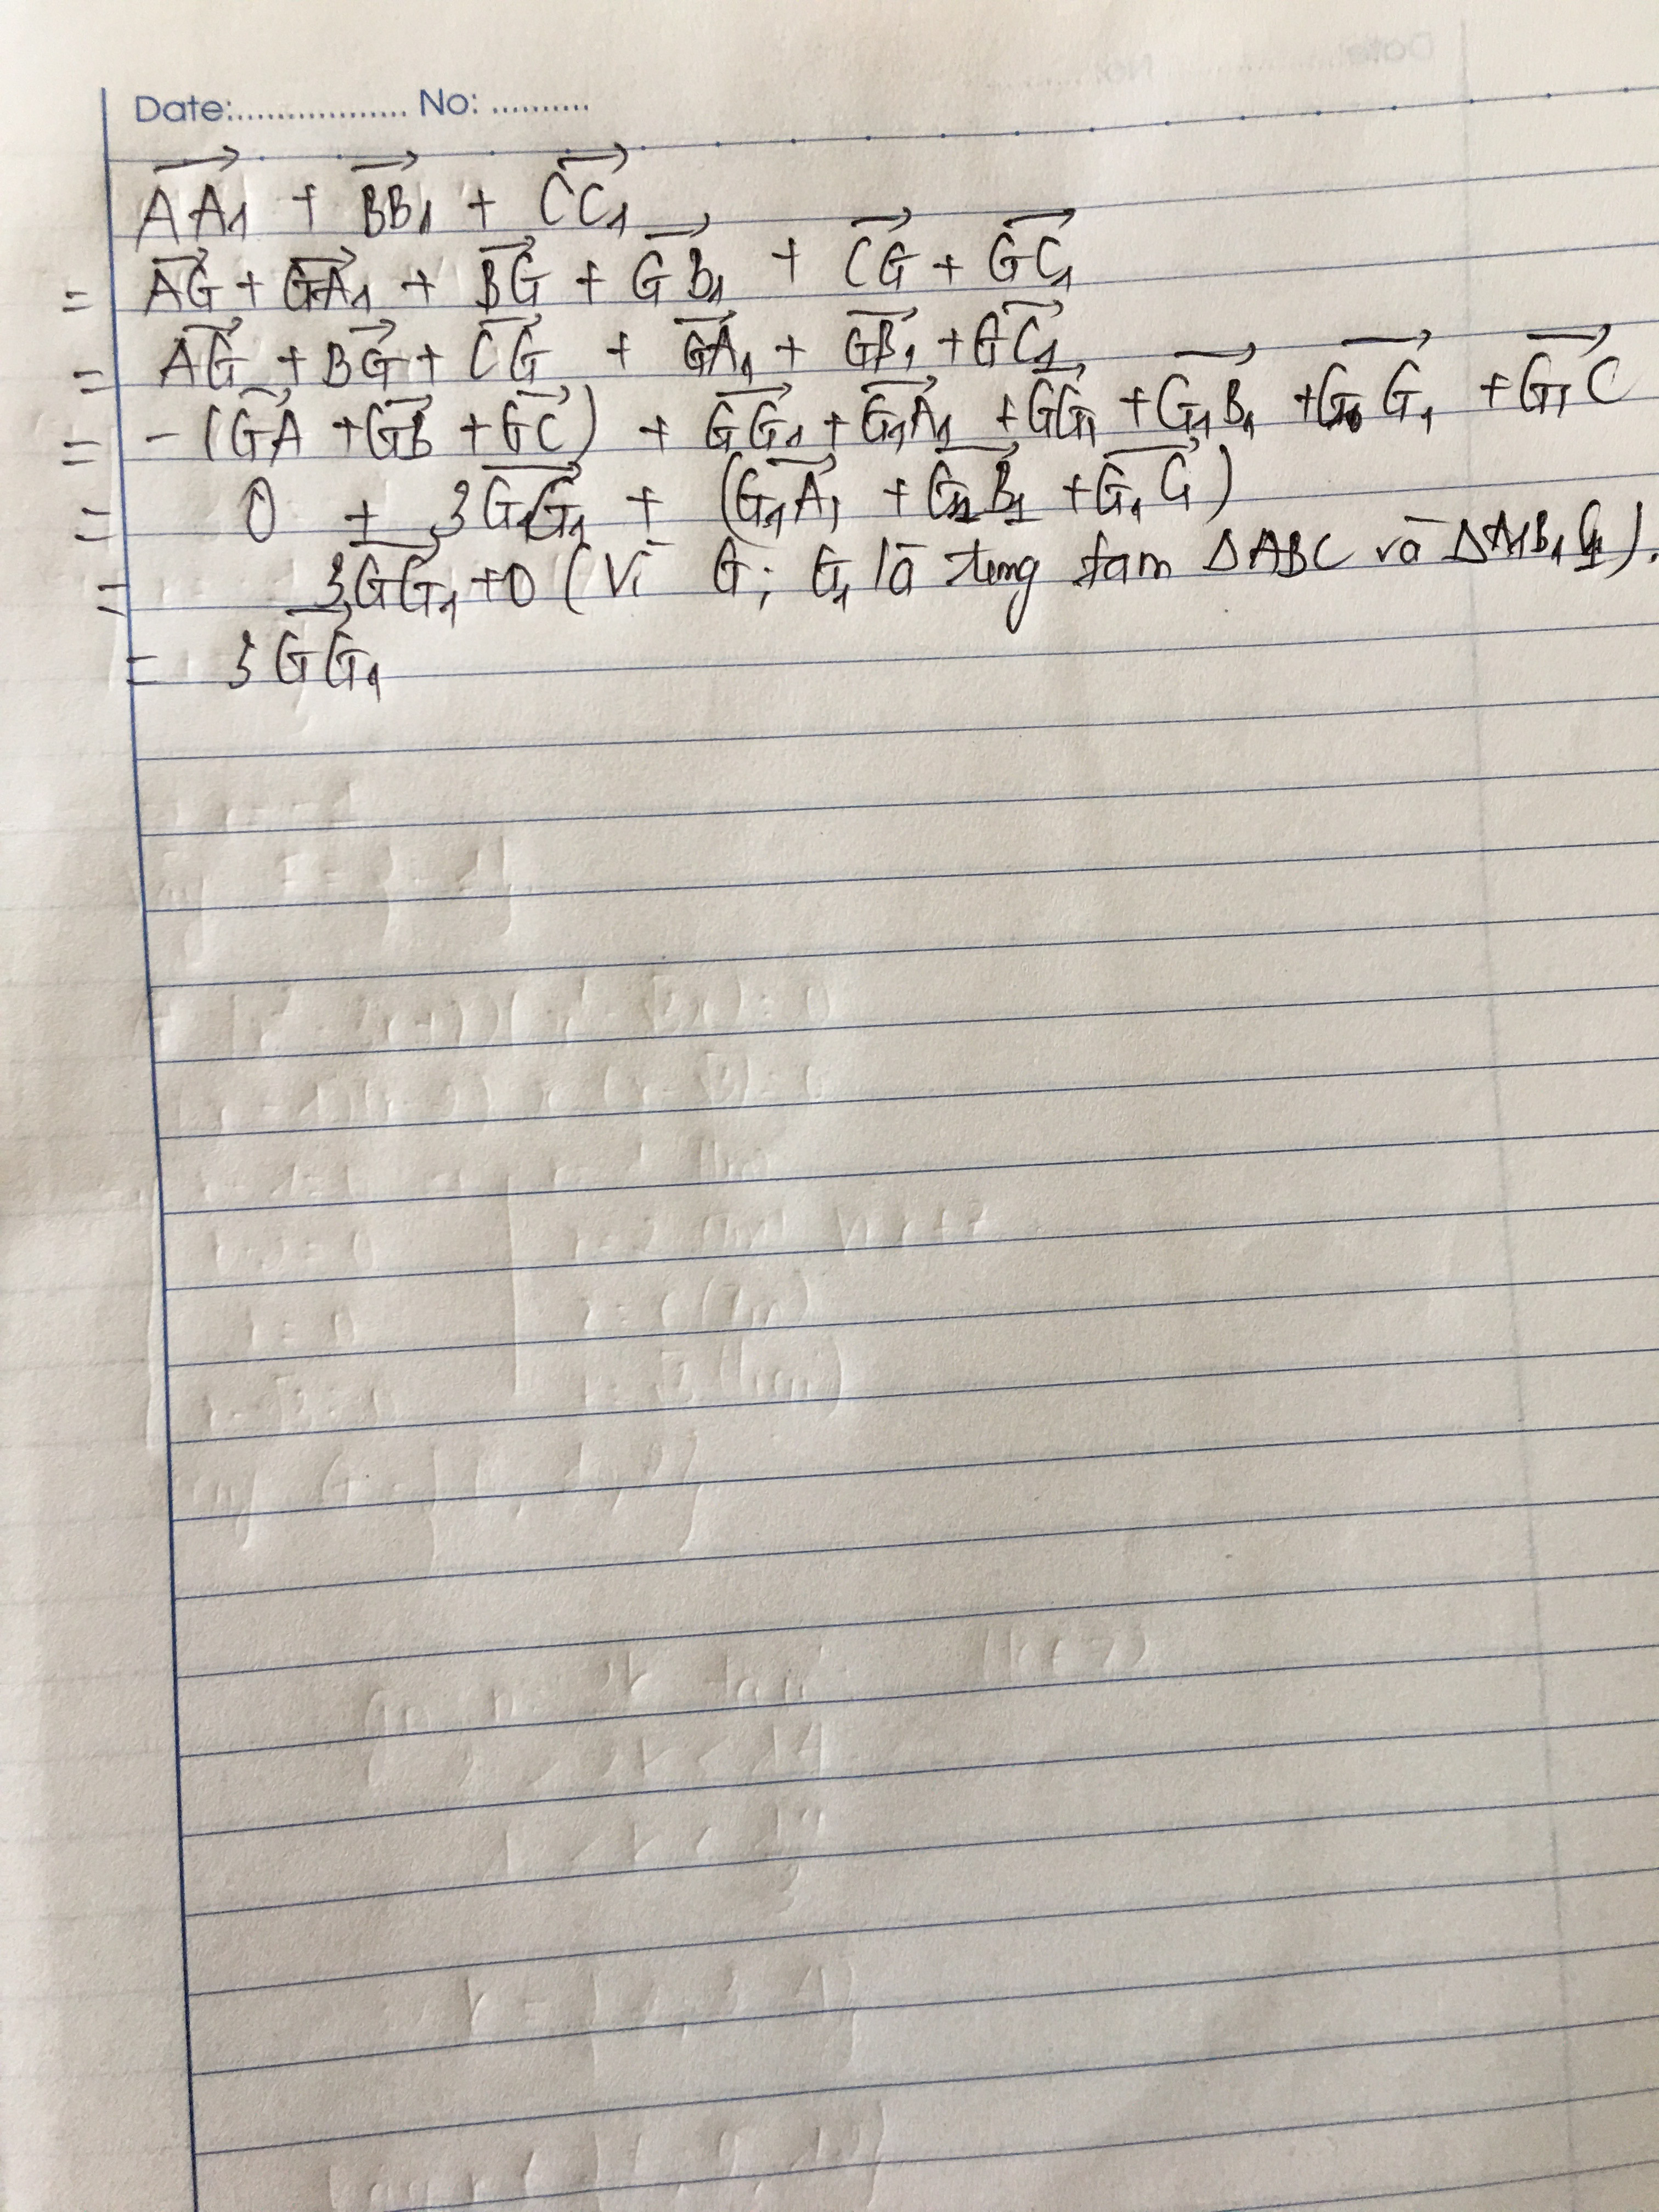 Date:................... No: ..........
AA₁ + BB₁ + CC₁
= AG + GA₁ + BG + GB₁ + CG + GC₁
= AG + BG + CG + GA₁ + GB₁ + GC₁
= - (GA + GB + GC) + GG₁ + G₁A₁ + GG₁ + G₁B₁ + G₁ + G₁C
= 0 + 3 + (G₁A₁ + G₁B₁ + G₁C₁)
= 3GG₁ + 0 (Vì G; G₁ là tâm ΔABC và ΔA₁B₁C₁).
= 3GG₁